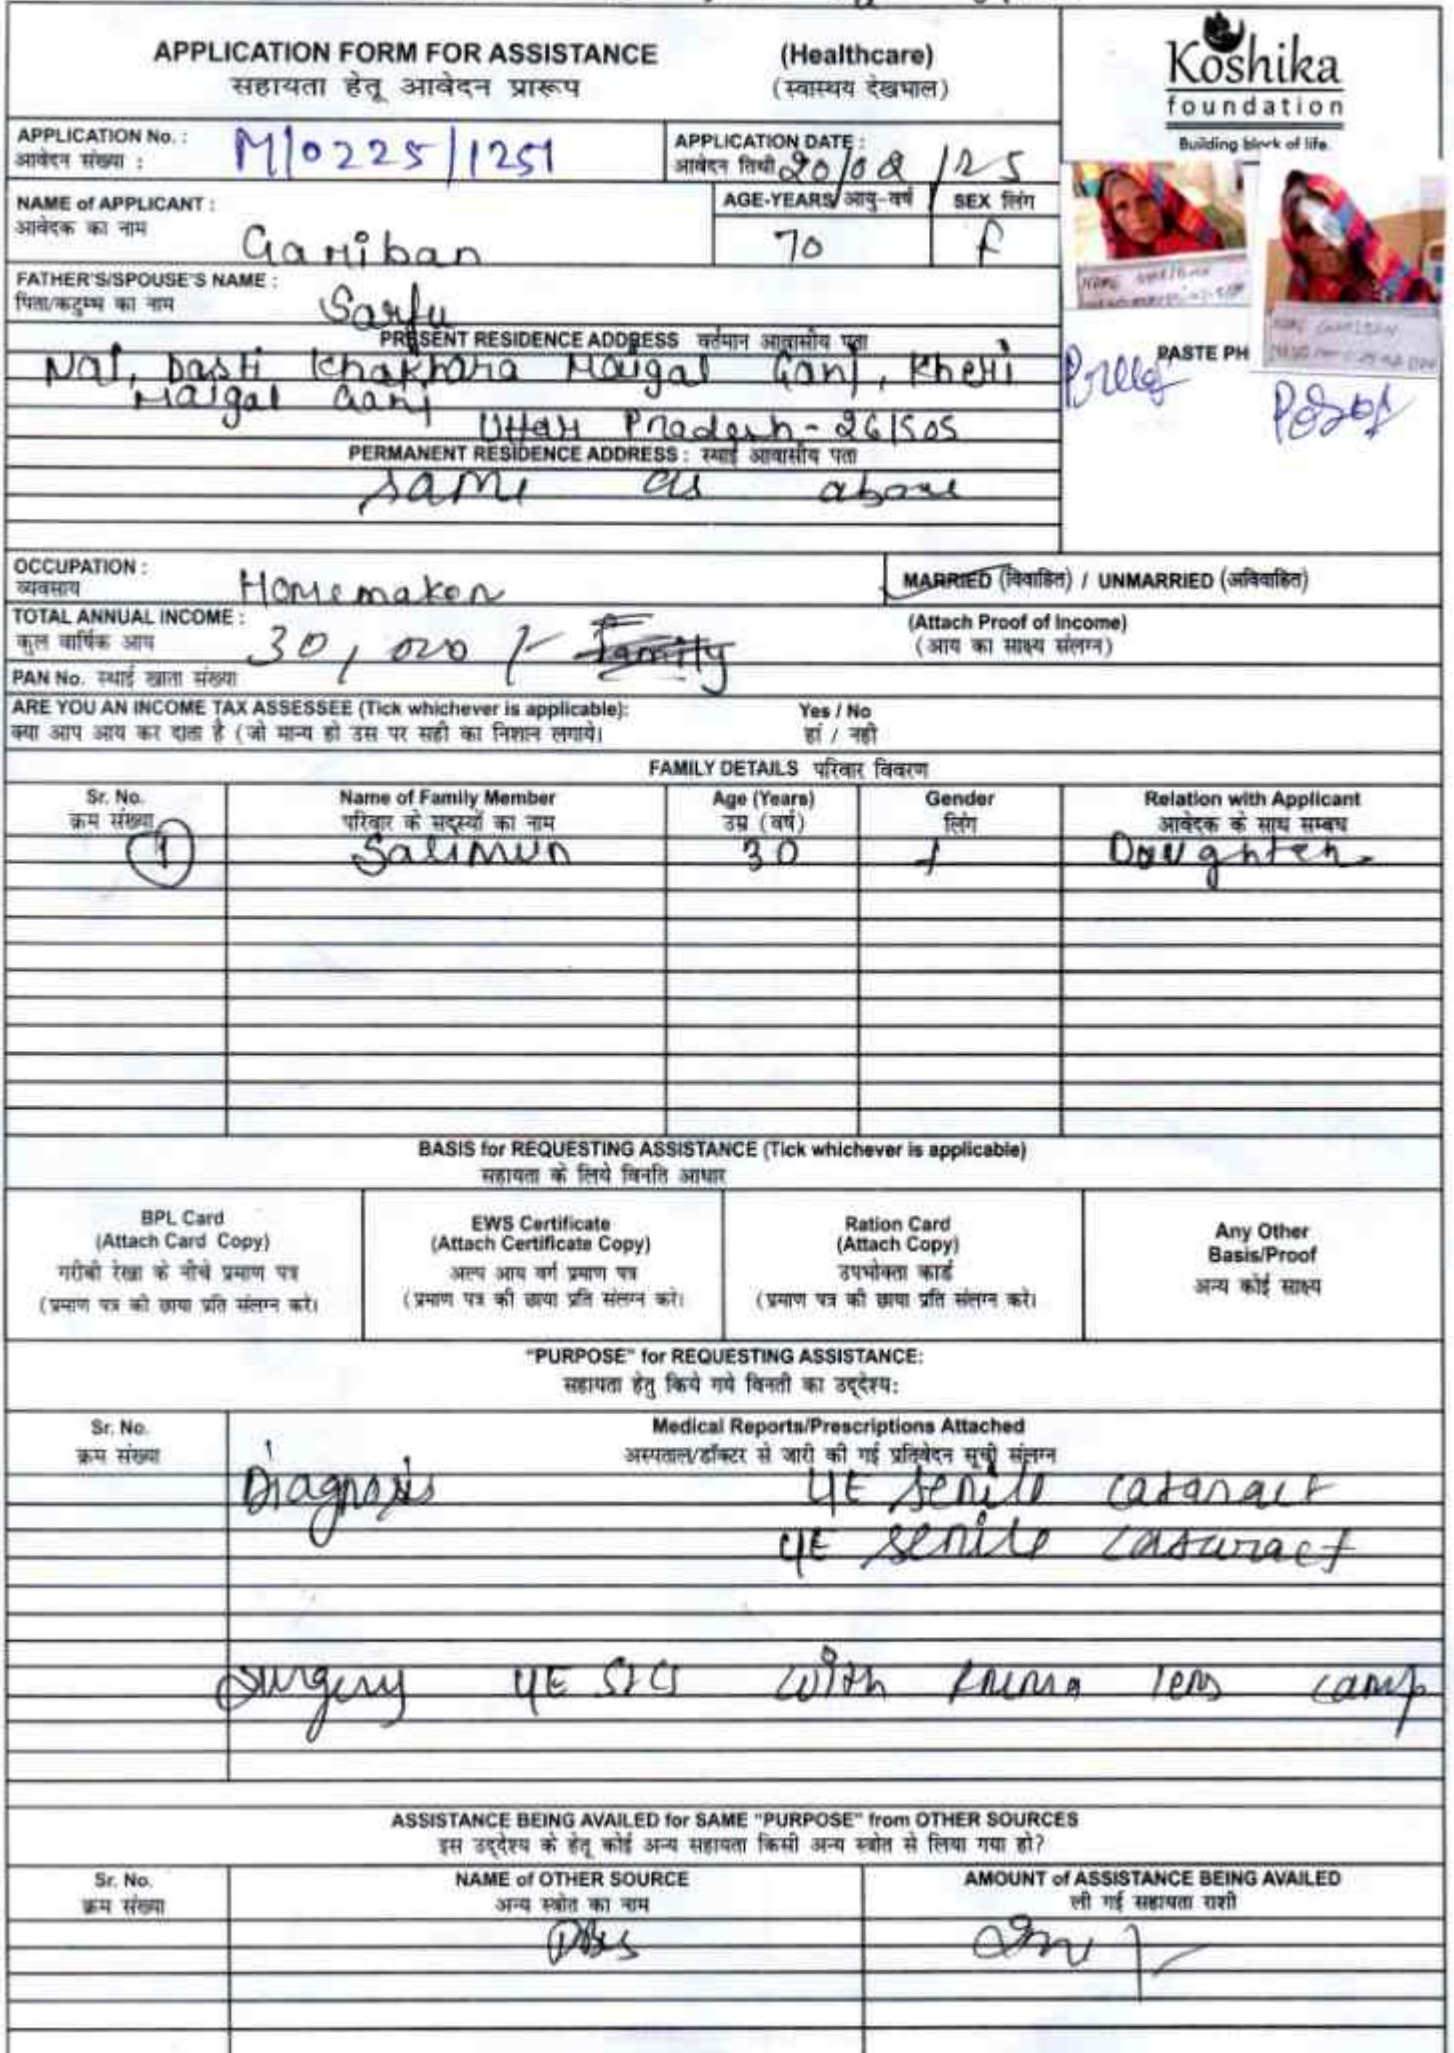 APPLICATION FORM FOR ASSISTANCE (Healthcare)
सहायता हेतू आवेदन प्रारूप (स्वास्थय देखभाल)
Koshika
foundation
Building block of life.
APPLICATION No. : M/0225/1251
आवेदन संख्या :
APPLICATION DATE :
आवेदन तिथी 20/02/25
NAME of APPLICANT :
आवेदक का नाम Gariban
AGE-YEARS/आयु-वर्ष 70
SEX लिंग F
FATHER'S/SPOUSE'S NAME :
पिता/कटुम्ब का नाम Sarfu
PASTE PH
PRESENT RESIDENCE ADDRESS वर्तमान आवासीय पता
Nai, Basti Khakhara Maigal Ganj, Kheri
Maigal Ganj
Uttar Pradesh - 261505
PERMANENT RESIDENCE ADDRESS : स्थाई आवासीय पता
same as above
OCCUPATION :
व्यवसाय Homemaker
MARRIED (विवाहित) / UNMARRIED (अविवाहित)
TOTAL ANNUAL INCOME :
कुल वार्षिक आय 30,000/- Family
(Attach Proof of Income)
(आय का साक्ष्य संलग्न)
PAN No. स्थाई खाता संख्या
ARE YOU AN INCOME TAX ASSESSEE (Tick whichever is applicable): Yes / No
क्या आप आय कर दाता है (जो मान्य हो उस पर सही का निशान लगाये। हां / नही
FAMILY DETAILS परिवार विवरण
Sr. No. Name of Family Member Age (Years) Gender Relation with Applicant
क्रम संख्या परिवार के सदस्यों का नाम उम्र (वर्ष) लिंग आवेदक के साथ सम्बध
1 Salimun 30 f Daughter
BASIS for REQUESTING ASSISTANCE (Tick whichever is applicable)
सहायता के लिये विनति आधार
BPL Card
(Attach Card Copy)
गरीबी रेखा के नीचे प्रमाण पत्र
(प्रमाण पत्र की छाया प्रति संलग्न करे।
EWS Certificate
(Attach Certificate Copy)
अल्प आय वर्ग प्रमाण पत्र
(प्रमाण पत्र की छाया प्रति संलग्न करे।
Ration Card
(Attach Copy)
उपभोक्ता कार्ड
(प्रमाण पत्र की छाया प्रति संलग्न करे।
Any Other
Basis/Proof
अन्य कोई साक्ष्य
"PURPOSE" for REQUESTING ASSISTANCE:
सहायता हेतु किये गये विनती का उद्देश्य:
Sr. No. Medical Reports/Prescriptions Attached
क्रम संख्या अस्पताल/डॉक्टर से जारी की गई प्रतिवेदन सूची संलग्न
Diagnosis senile cataract
senile cataract
Surgery SICS with lens camp
ASSISTANCE BEING AVAILED for SAME "PURPOSE" from OTHER SOURCES
इस उद्देश्य के हेतू कोई अन्य सहायता किसी अन्य स्त्रोत से लिया गया हो?
Sr. No. NAME of OTHER SOURCE AMOUNT of ASSISTANCE BEING AVAILED
क्रम संख्या अन्य स्त्रोत का नाम ली गई सहायता राशी